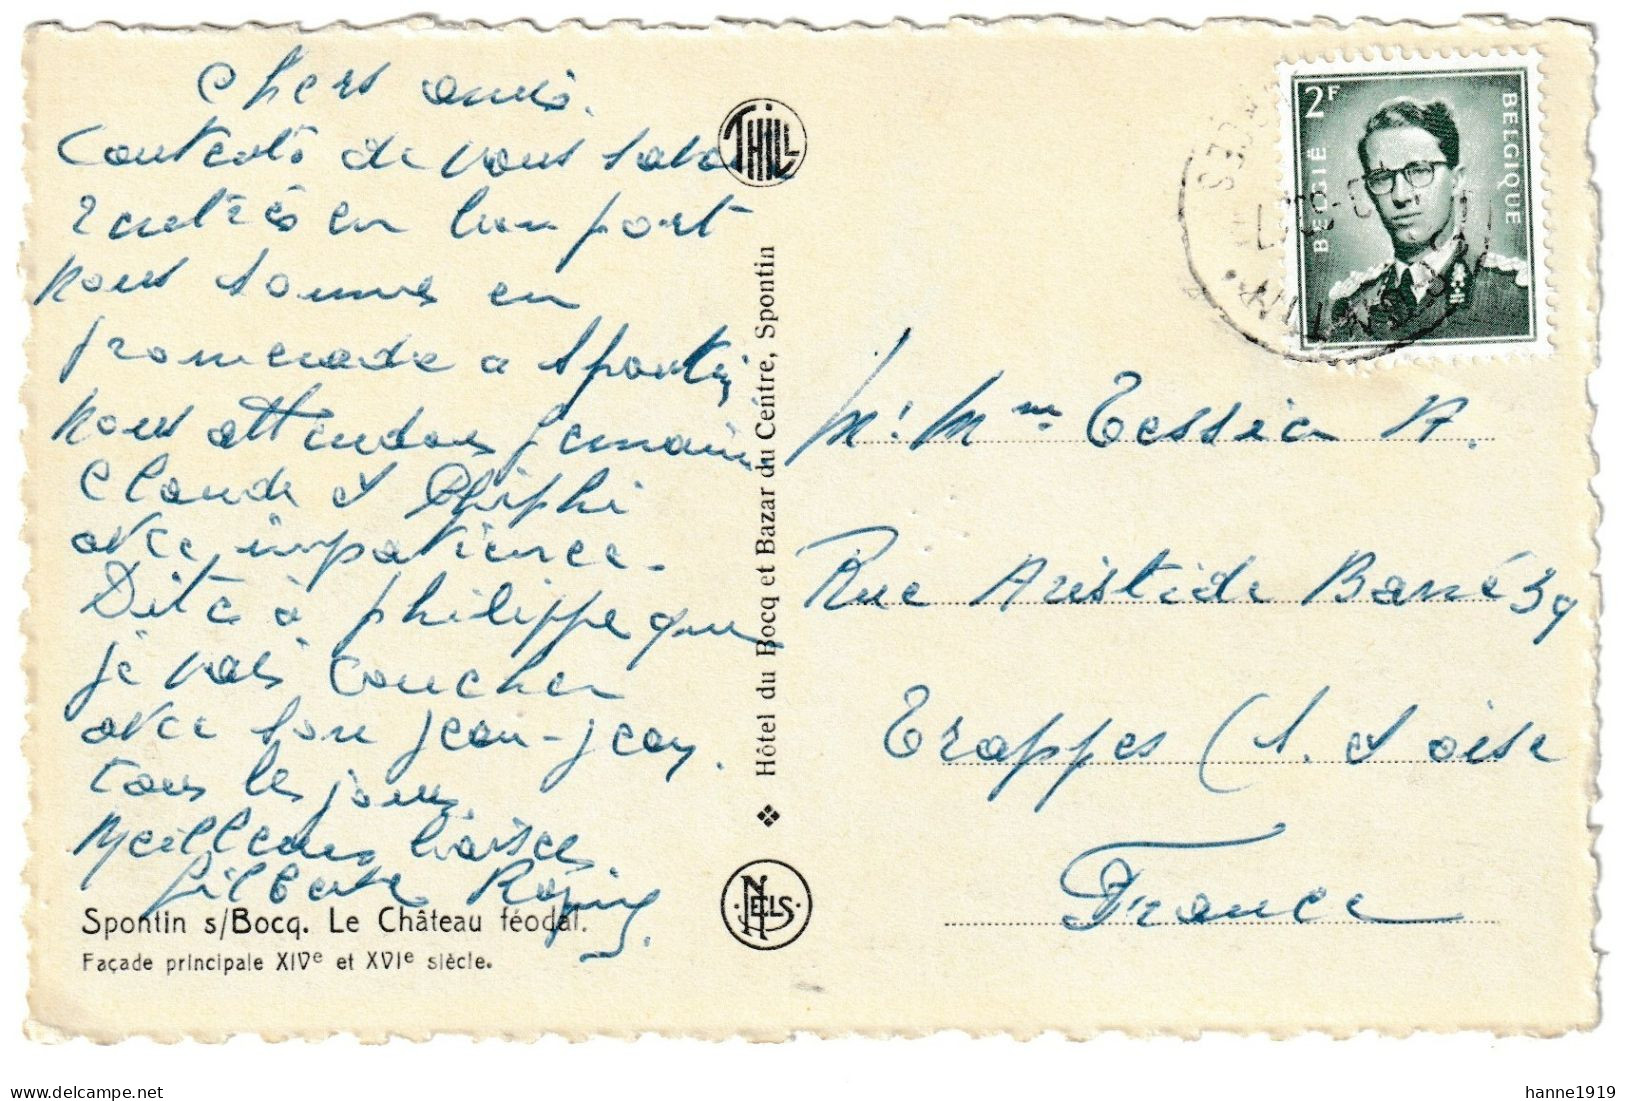 Chers amis.
Contents de vous savoir
rentrés en bon port
nous sommes en
promenade a Spontin
nous attendons Germain
Claude et
avec impatience.
Dite à philippe que
je vais coucher
avec son jean-jean.
tous les jours.
Meilleurs baises
Gilberte
Spontin s/Bocq. Le Château féodal.
Façade principale XIVe et XVIe siècle.
THILL
Hôtel du Bocq et Bazar du Centre, Spontin
NELS
2F
BELGIË
BELGIQUE
M. Mme Tessier A.
Rue Aristide Barré 39
Trappes (S. et oise
France
delcampe.net
hanne1919